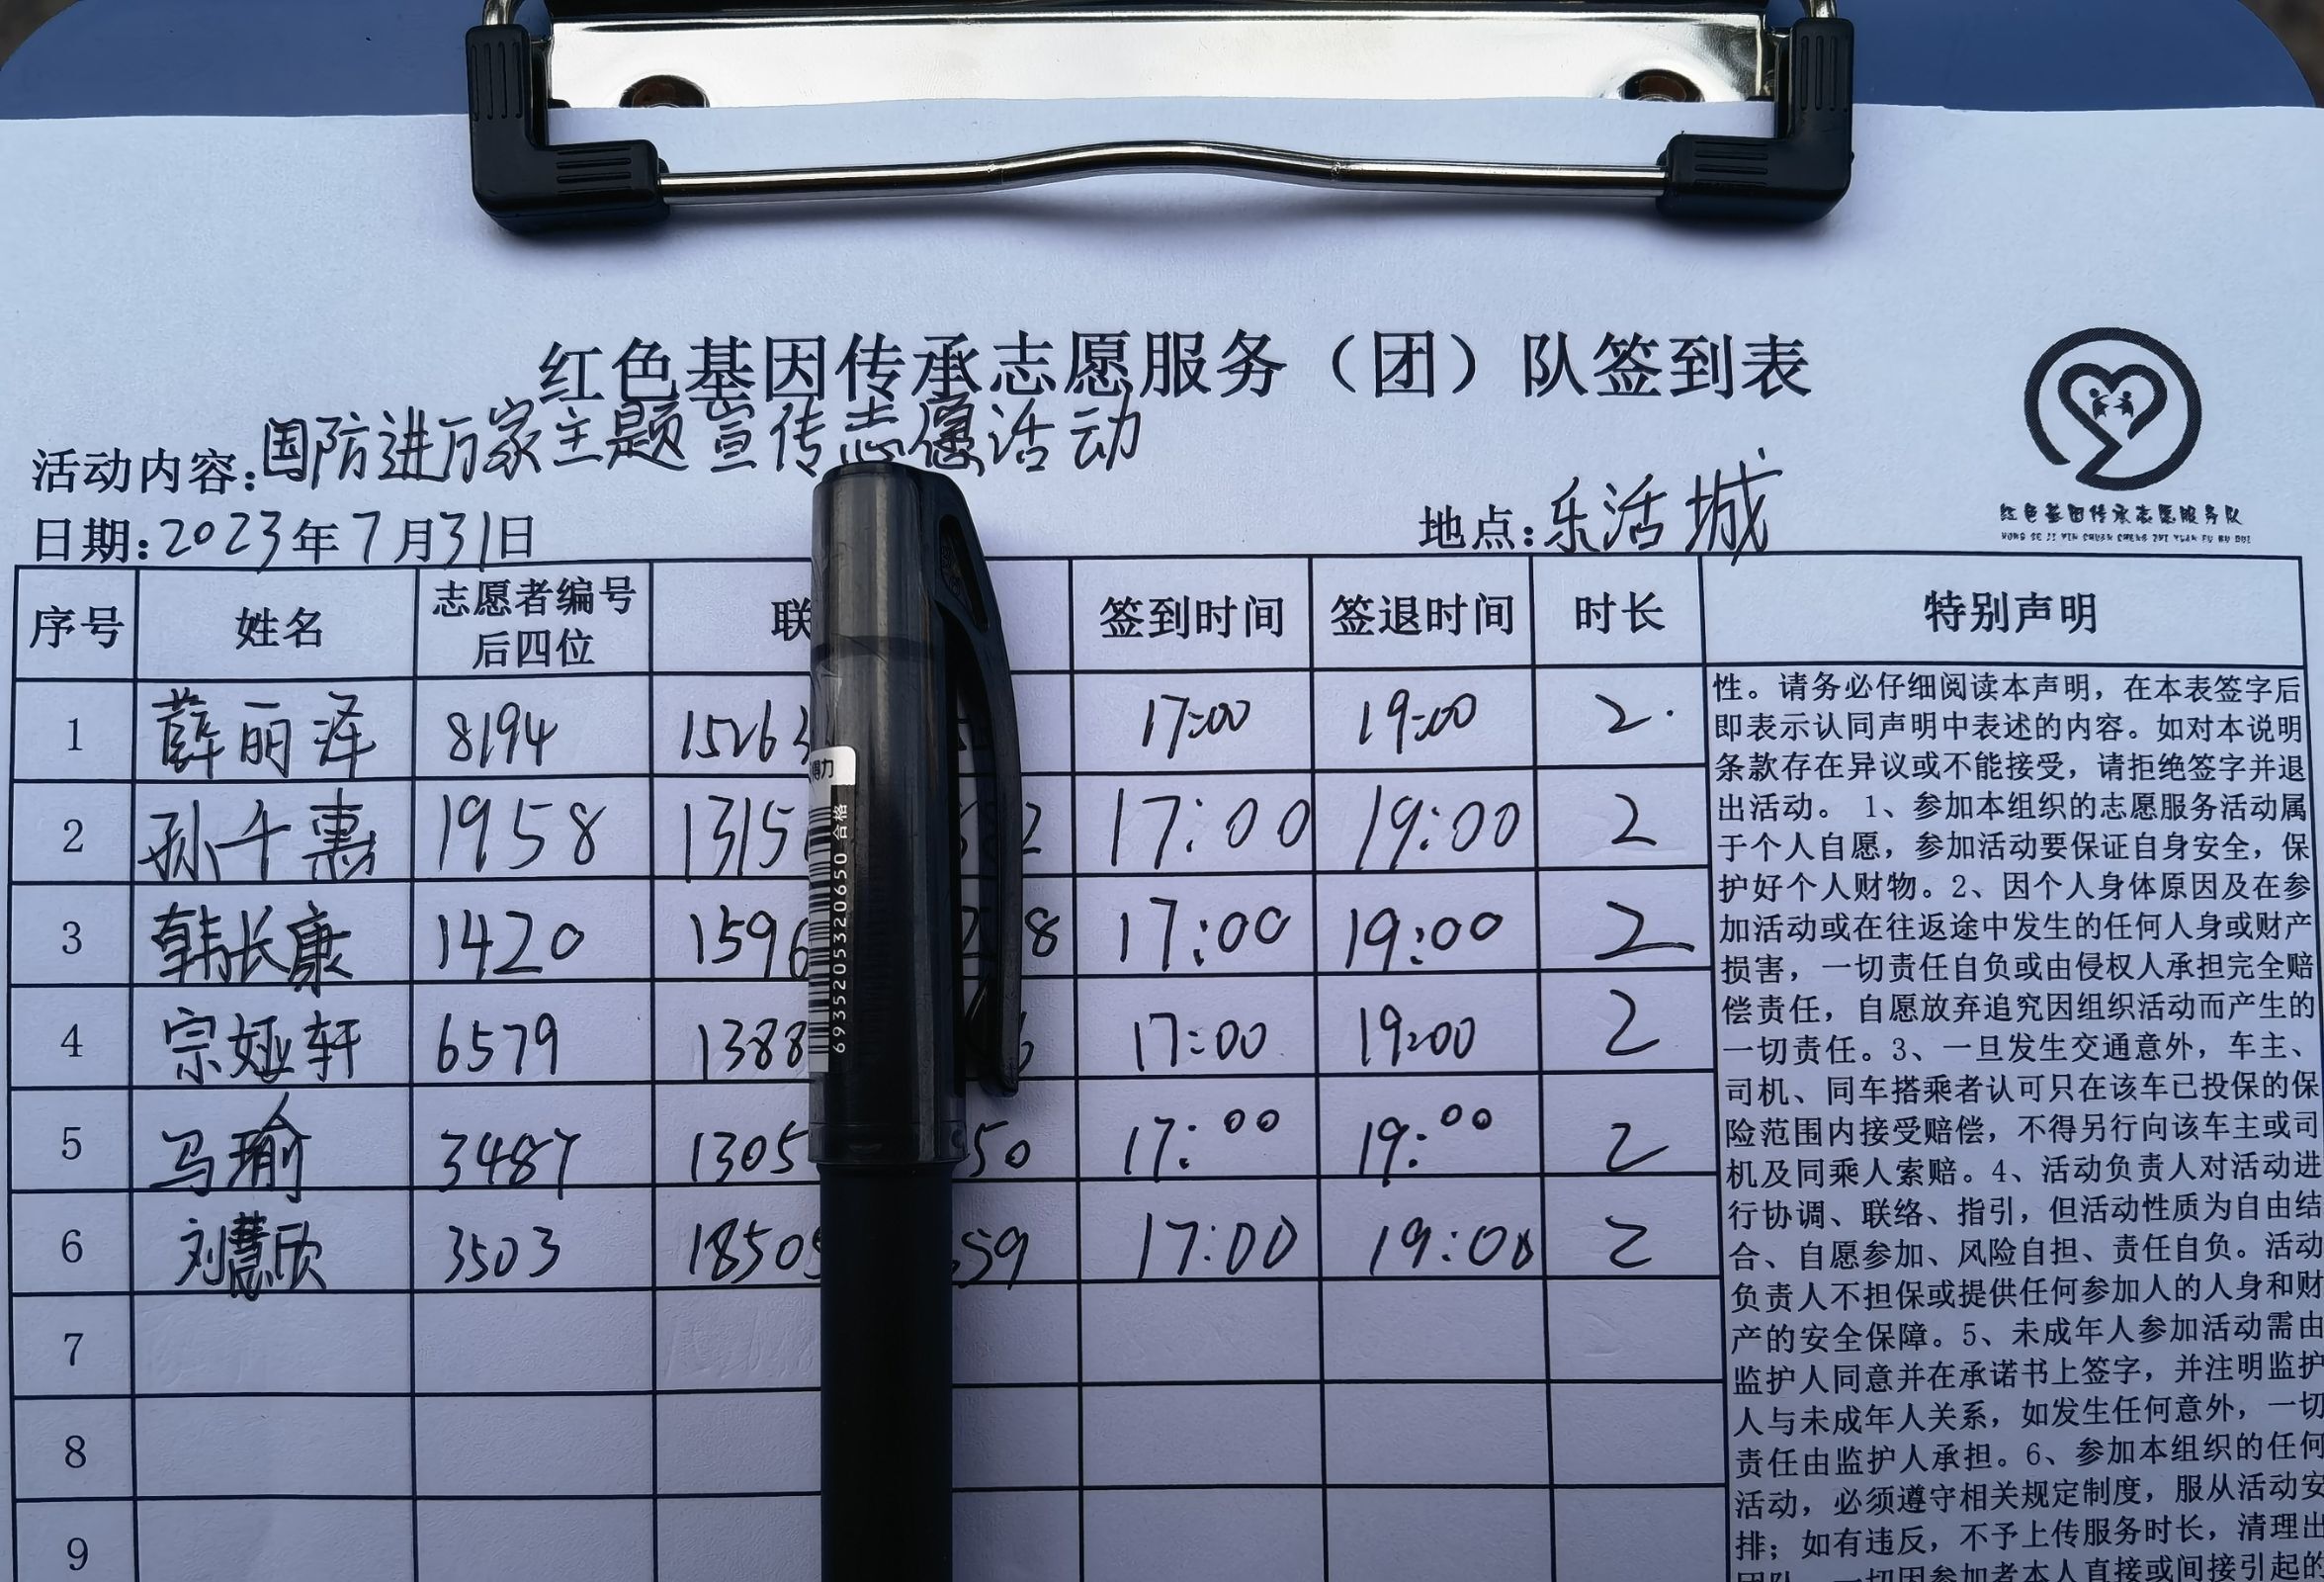 红色基因传承志愿服务（团）队签到表
活动内容:国防进万家主题宣传志愿活动
日期:2023年7月31日 地点:乐活城
红色基因传承志愿服务队
HONG SE JI YIN CHUAN CHENG ZHI YUAN FU WU DUI
序号 姓名 志愿者编号后四位 联 签到时间 签退时间 时长 特别声明
1 薛丽泽 8194 15263 17:00 19:00 2.
2 孙千惠 1958 1315 2 17:00 19:00 2
3 韩长康 1420 1596 8 17:00 19:00 2
4 宗娅轩 6579 1388 17:00 19:00 2
5 马瑜 3487 1305 50 17:00 19:00 2
6 刘慧欣 3503 18505 59 17:00 19:00 2
7
8
9
性。请务必仔细阅读本声明，在本表签字后
即表示认同声明中表述的内容。如对本说明
条款存在异议或不能接受，请拒绝签字并退
出活动。 1、参加本组织的志愿服务活动属
于个人自愿，参加活动要保证自身安全，保
护好个人财物。2、因个人身体原因及在参
加活动或在往返途中发生的任何人身或财产
损害，一切责任自负或由侵权人承担完全赔
偿责任，自愿放弃追究因组织活动而产生的
一切责任。3、一旦发生交通意外，车主、
司机、同车搭乘者认可只在该车已投保的保
险范围内接受赔偿，不得另行向该车主或司
机及同乘人索赔。4、活动负责人对活动进
行协调、联络、指引，但活动性质为自由结
合、自愿参加、风险自担、责任自负。活动
负责人不担保或提供任何参加人的人身和财
产的安全保障。5、未成年人参加活动需由
监护人同意并在承诺书上签字，并注明监护
人与未成年人关系，如发生任何意外，一切
责任由监护人承担。6、参加本组织的任何
活动，必须遵守相关规定制度，服从活动安
排；如有违反，不予上传服务时长，清理出
团队。一切因参加者本人直接或间接引起的
得力
6935205320650 合格